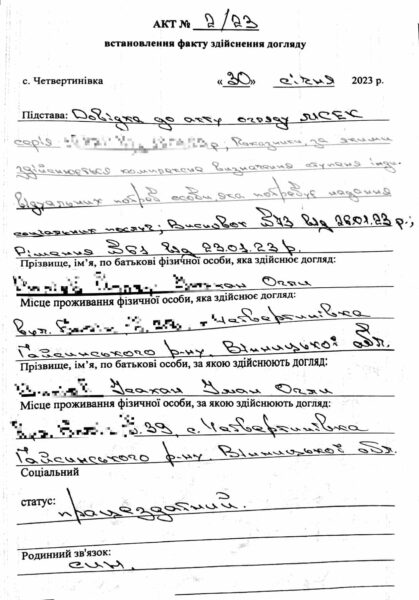 АКТ № 2/23
встановлення факту здійснення догляду
с. Четвертинівка «30» січня 2023 р.
Підстава: Довідка до акту огляду МСЕК
серія р, Показники, за якими
здійснюється комплексне визначення ступеня інди-
відуальних потреб особи, яка потребує надання
соціальних послуг, Висновок №43 від 26.01.23 р.;
Рішення №61 від 23.01.23 р.
Прізвище, ім’я, по батькові фізичної особи, яка здійснює догляд:
Огли
Місце проживання фізичної особи, яка здійснює догляд:
вул. с. Четвертинівка
Гайсинського р-ну, Вінницької обл.
Прізвище, ім’я, по батькові фізичної особи, за якою здійснюють догляд:
Огли
Місце проживання фізичної особи, за якою здійснюють догляд:
39, с. Четвертинівка
Гайсинського р-ну, Вінницької обл.
Соціальний
статус: працездатний.
Родинний зв’язок:
син.